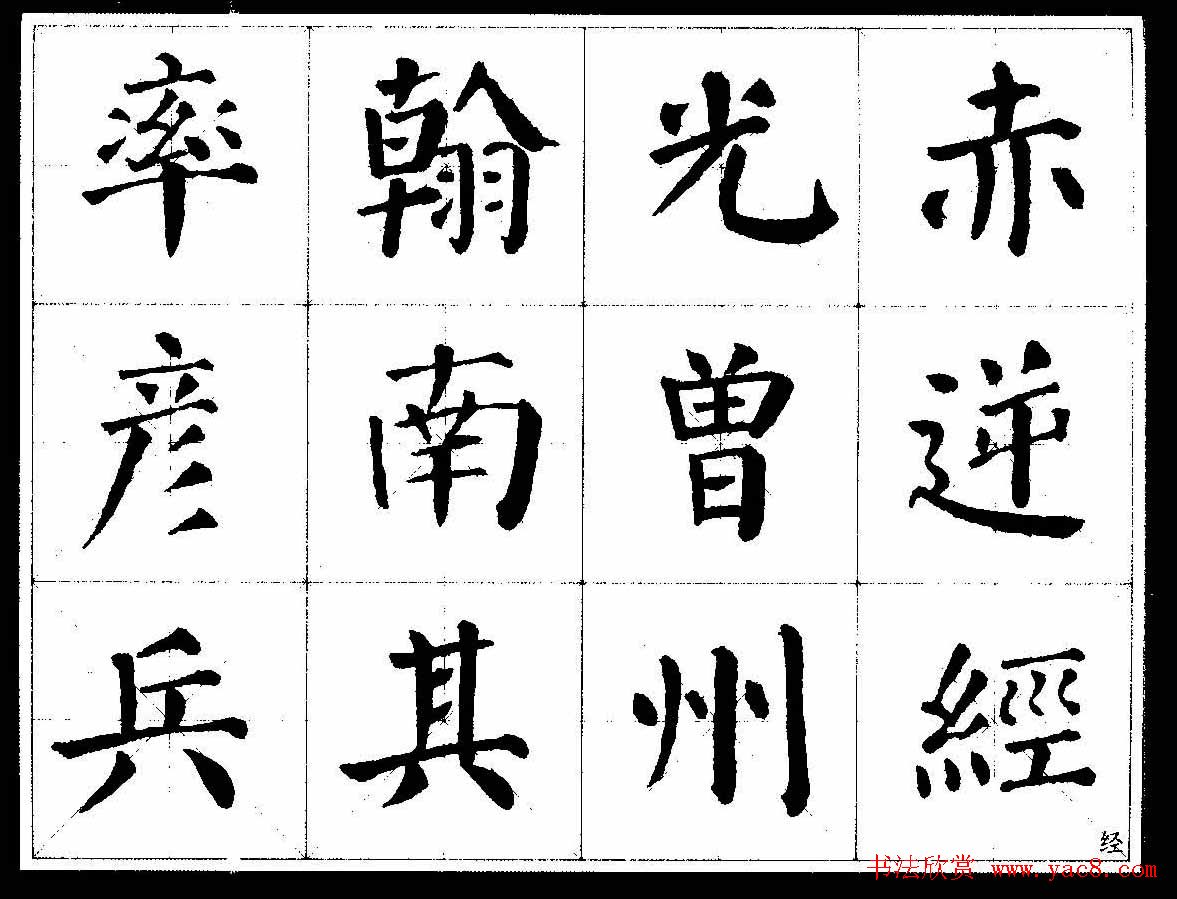 赤逆經
光曾州
翰南其
率彦兵
经
书法欣赏 www.yac8.com